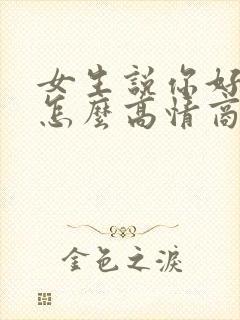 女生說你好
怎麼高情商
金色之淚